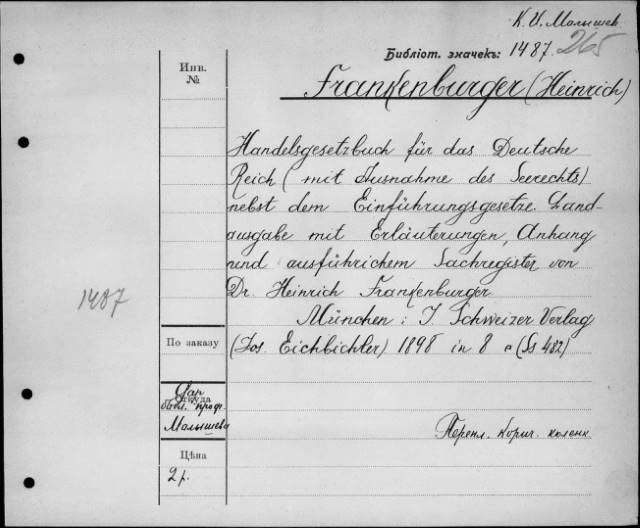 К. И. Малышев.
Библіот. значекъ: 1487. 265
Инв. №
Frankenburger (Heinrich)
Handelsgesetzbuch für das Deutsche
Reich (mit Ausnahme des Seerechts)
nebst dem Einführungsgesetze. Hand-
ausgabe mit Erläuterungen, Anhang
und ausführichem Sachregister von
Dr. Heinrich Frankenburger
1487
München: J. Schweizer Verlag
По заказу
(Jos. Eichbichler) 1898 in 8 (Ss 482)
Дар
Откуда
проф.
Малышева
Перепл. корич. коленк.
Цѣна
2 р.